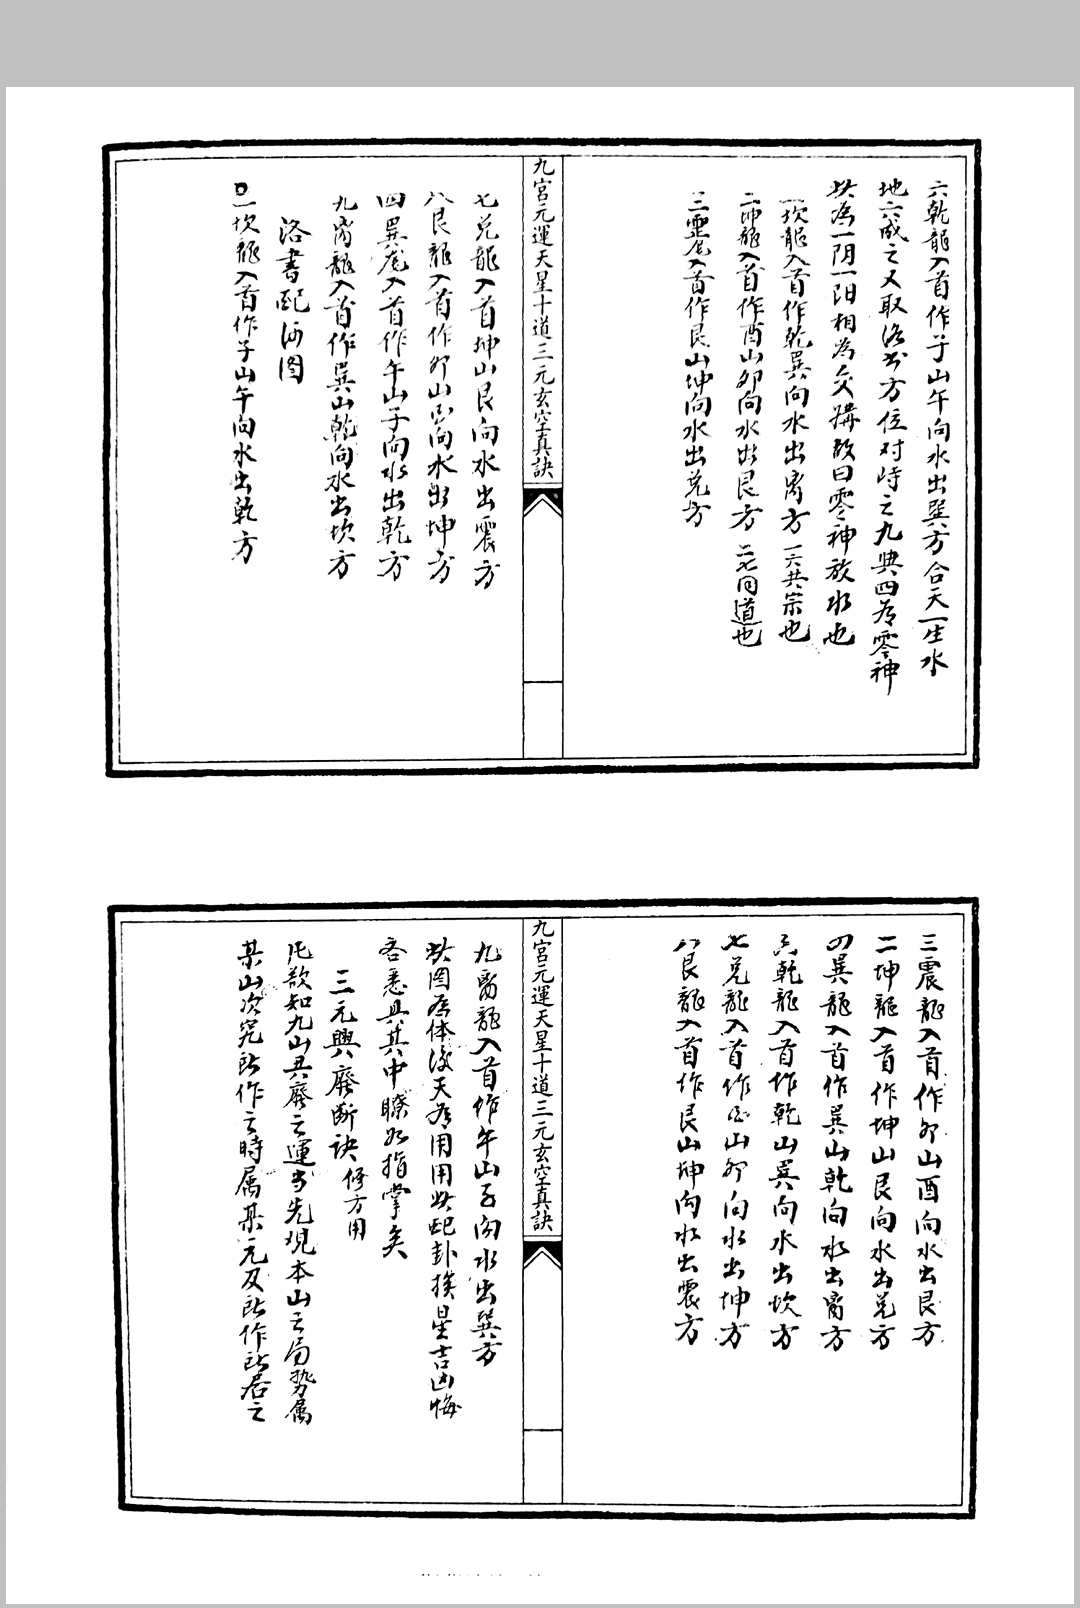 六乾龍入首作子山午向水出巽方合天一生水
地六成之又取洛书方位对峙之九與四為零神
共為一阴一阳相為交媾故曰零神放水也
一坎龍入首作乾巽向水出离方一六共宗也
二坤龍入首作酉山卯向水出艮方二七同道也
三震龍入首作艮山坤向水出兑方
九宮元運天星十道三元玄空真訣
七兑龍入首坤山艮向水出震方
八艮龍入首作卯山酉向水出坤方
四巽龍入首作午山子向水出乾方
九离龍入首作巽山乾向水出坎方
洛書配河图
一坎龍入首作子山午向水出乾方
三震龍入首作卯山酉向水出艮方
二坤龍入首作坤山艮向水出兑方
四巽龍入首作巽山乾向水出离方
六乾龍入首作乾山巽向水出坎方
七兑龍入首作酉山卯向水出坤方
八艮龍入首作艮山坤向水出震方
九宮元運天星十道三元玄空真訣
九离龍入首作午山子向水出巽方
此图為体後天為用用此配卦挨星吉凶悔
吝悉具其中瞭如指掌矣
三元興廢断訣 修方用
凡欲知九山興廢之運当先观本山之局势属
某山次究所作之時属某元及所作所居之